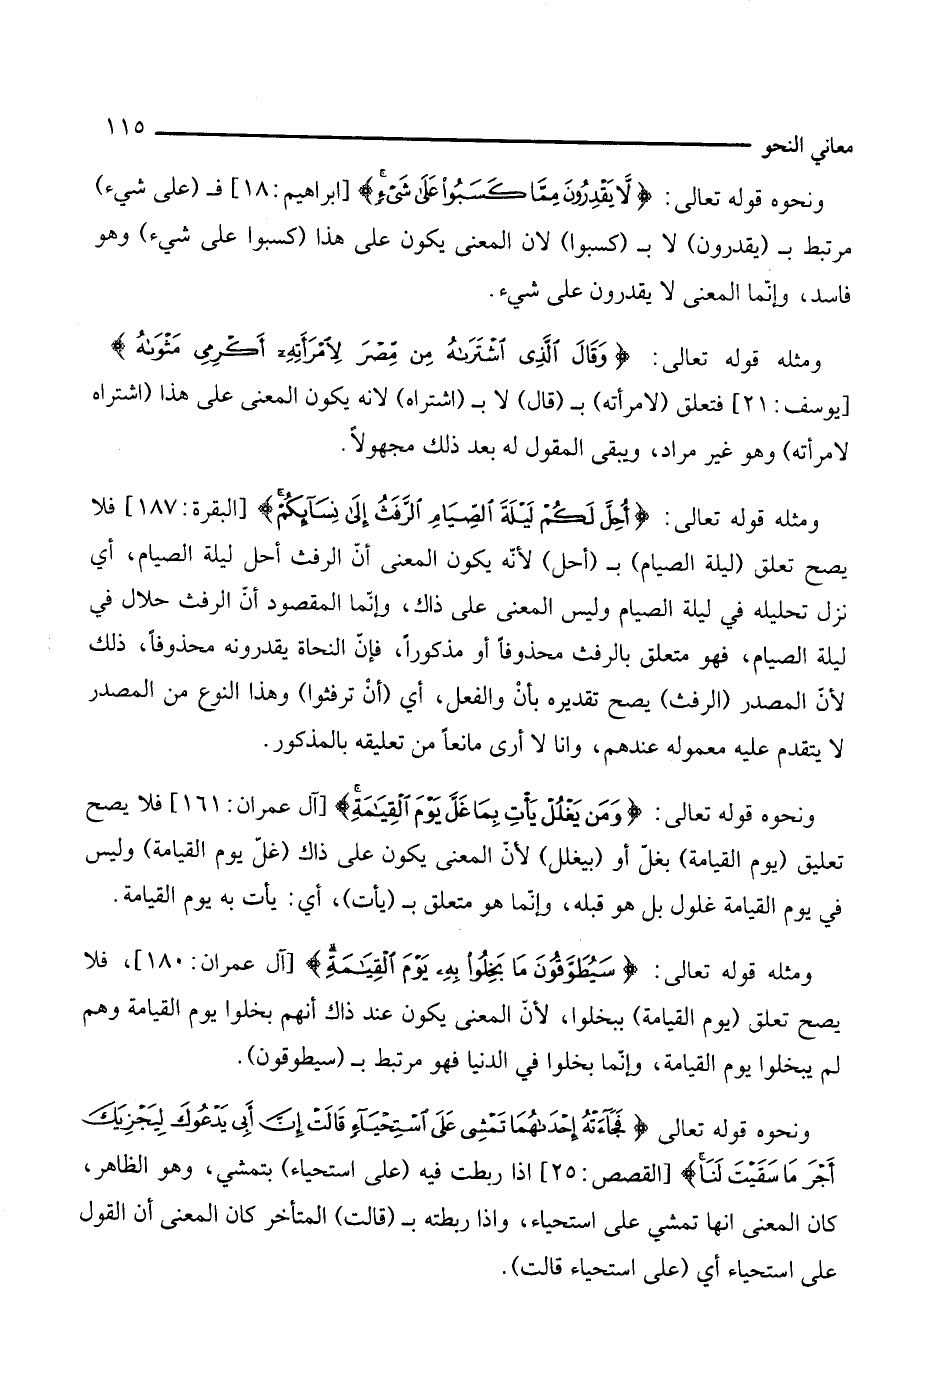 معاني النحو ١١٥
ونحوه قوله تعالى: ﴿ لَّا يَقْدِرُونَ مِمَّا كَسَبُوا۟ عَلَىٰ شَىْءٍ ۚ ﴾ [ابراهيم: ١٨] فـ (على شيء)
مرتبط بـ (يقدرون) لا بـ (كسبوا) لان المعنى يكون على هذا (كسبوا على شيء) وهو
فاسد، وإنّما المعنى لا يقدرون على شيء.
ومثله قوله تعالى: ﴿ وَقَالَ ٱلَّذِى ٱشْتَرَىٰهُ مِن مِّصْرَ لِٱمْرَأَتِهِۦٓ أَكْرِمِى مَثْوَىٰهُ ﴾
[يوسف: ٢١] فتعلق (لامرأته) بـ (قال) لا بـ (اشتراه) لانه يكون المعنى على هذا (اشتراه
لامرأته) وهو غير مراد، ويبقى المقول له بعد ذلك مجهولاً.
ومثله قوله تعالى: ﴿ أُحِلَّ لَكُمْ لَيْلَةَ ٱلصِّيَامِ ٱلرَّفَثُ إِلَىٰ نِسَآئِكُمْ ۚ ﴾ [البقرة: ١٨٧] فلا
يصح تعلق (ليلة الصيام) بـ (أحل) لأنّه يكون المعنى أنّ الرفث أحل ليلة الصيام، أي
نزل تحليله في ليلة الصيام وليس المعنى على ذاك، وإنّما المقصود أنّ الرفث حلال في
ليلة الصيام، فهو متعلق بالرفث محذوفاً أو مذكوراً، فإنّ النحاة يقدرونه محذوفاً، ذلك
لأنّ المصدر (الرفث) يصح تقديره بأنْ والفعل، أي (أنْ ترفثوا) وهذا النوع من المصدر
لا يتقدم عليه معموله عندهم، وانا لا أرى مانعاً من تعليقه بالمذكور.
ونحوه قوله تعالى: ﴿ وَمَن يَغْلُلْ يَأْتِ بِمَا غَلَّ يَوْمَ ٱلْقِيَٰمَةِ ۚ ﴾ [آل عمران: ١٦١] فلا يصح
تعليق (يوم القيامة) بغلّ أو (بيغلل) لأنّ المعنى يكون على ذاك (غلّ يوم القيامة) وليس
في يوم القيامة غلول بل هو قبله، وإنّما هو متعلق بـ (يأت)، أي: يأت به يوم القيامة.
ومثله قوله تعالى: ﴿ سَيُطَوَّقُونَ مَا بَخِلُوا۟ بِهِۦ يَوْمَ ٱلْقِيَٰمَةِ ۗ ﴾ [آل عمران: ١٨٠]، فلا
يصح تعلق (يوم القيامة) ببخلوا، لأنّ المعنى يكون عند ذاك أنهم بخلوا يوم القيامة وهم
لم يبخلوا يوم القيامة، وإنّما بخلوا في الدنيا فهو مرتبط بـ (سيطوقون).
ونحوه قوله تعالى ﴿ فَجَآءَتْهُ إِحْدَىٰهُمَا تَمْشِى عَلَى ٱسْتِحْيَآءٍ قَالَتْ إِنَّ أَبِى يَدْعُوكَ لِيَجْزِيَكَ
أَجْرَ مَا سَقَيْتَ لَنَا ۚ ﴾ [القصص: ٢٥] اذا ربطت فيه (على استحياء) بتمشي، وهو الظاهر،
كان المعنى انها تمشي على استحياء، واذا ربطته بـ (قالت) المتأخر كان المعنى أن القول
على استحياء أي (على استحياء قالت).